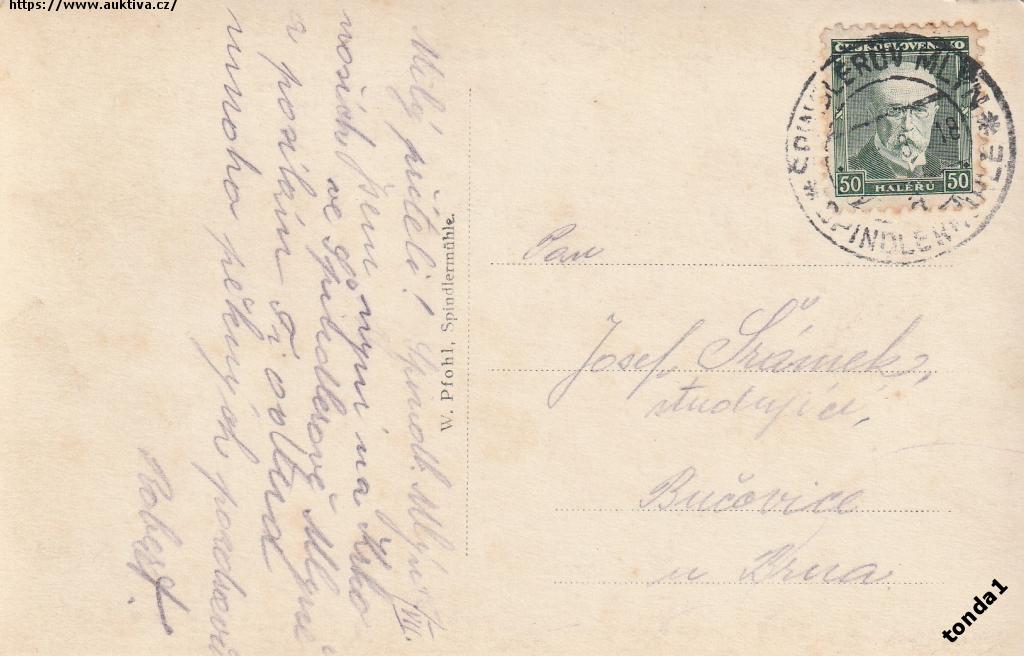 https://www.auktiva.cz/
Milý příteli! Spindl. Mlýn VII.
jsem nyní na
ve Špindlerově Mlýně
a posílám Ti odtud
mnoho pěkných pozdravů
Robert.
W. Pfohl, Spindlermühle.
ČESKOSLOVENSKO
50 HALÉŘŮ 50
* ŠPINDLERŮV MLÝN *
SPINDLERMÜHLE
Pan
Josef Šrámek,
studující,
Bučovice
u Brna
tonda1